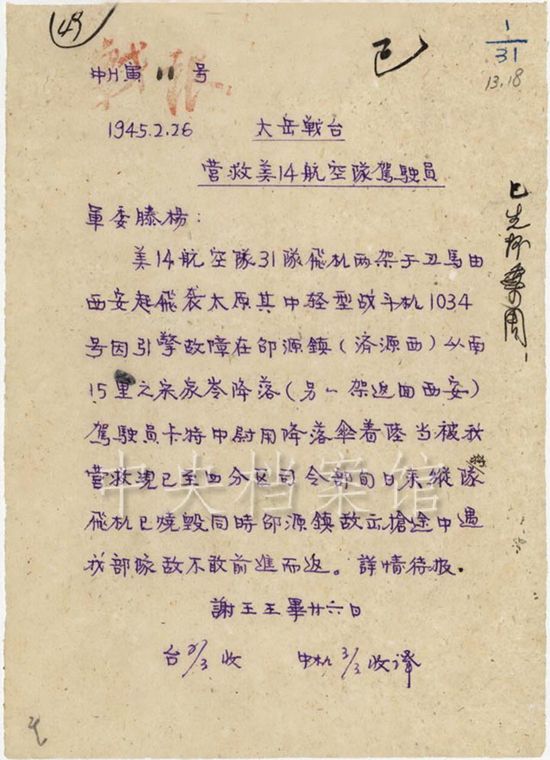 49
1
31
13.18
战报
号
1945.2.26 太岳戰台
營救美14航空隊駕駛員
軍委滕楊:
美14航空隊31隊飛机两架于丑馬由
西安起飛袭太原其中轻型战斗机1034
号因引擎故障在邵源鎮(済源西)以南
15里之宋家岺降落(另一架返回西安)
駕駛員卡特中尉用降落傘着陸当被我
營救現已至四分区司令部旬日来縱隊
飛机已燒毀同時邵源鎮敌出搶途中遇
我部隊敌不敢前進而返。詳情待报.
謝王王畢廿六日
台 3/3 收 中机 3/3 收译
中央档案馆